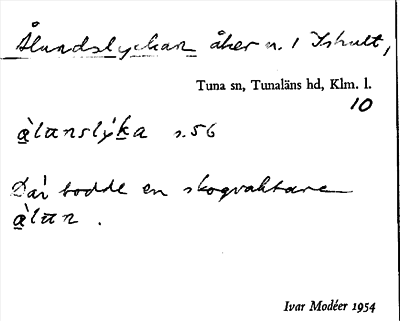 Ålundslyckan åker n. 1 Ishult,
Tuna sn, Tunaläns hd, Klm. l.
10
à̱lɯnslẏ́ḵa s. 56
Där bodde en skogvaktare
à̱lɯn .
Ivar Modéer 1954